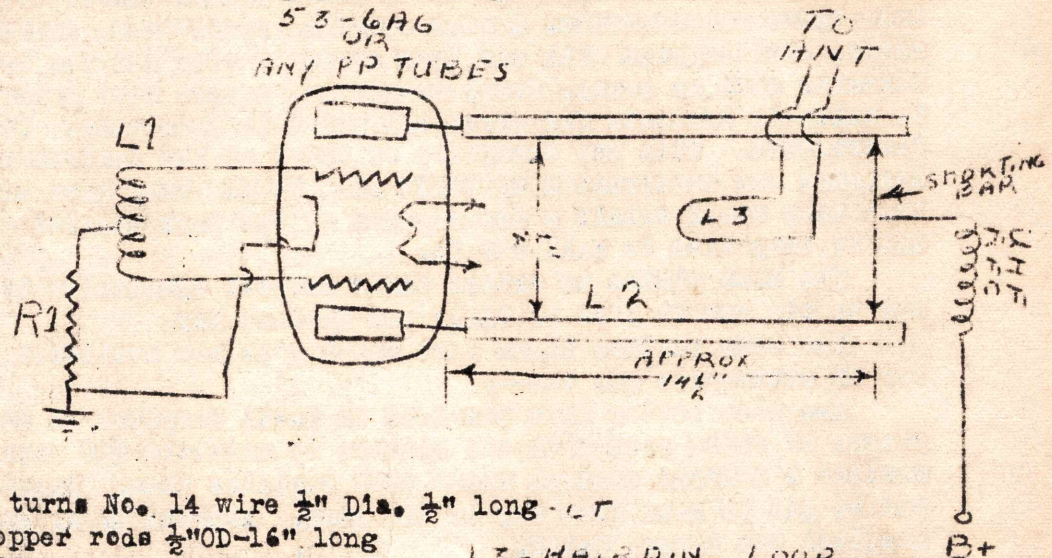 53-6A6
OR
ANY PP TUBES
TO
ANT
L1
SHORTING
BAR
L3
R1
L2
APPROX
14½"
turns No. 14 wire ½" Dia. ½" long - CT
opper rods ½"OD-16" long
L3-HAIRPIN LOOP
B+